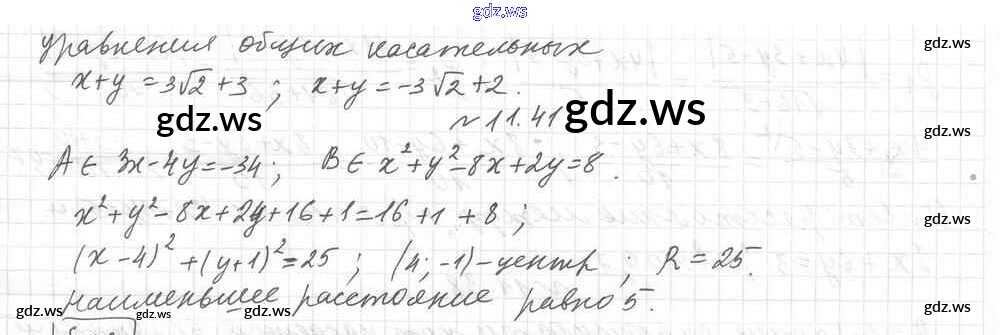 gdz.ws
уравнения общих касательных
gdz.ws
x+y=3√2+3; x+y=-3√2+2.
gdz.ws
gdz.ws gdz.ws
№11.41
gdz.ws
A∈ 3x-4y=-34; B∈ x²+y²-8x+2y=8.
x²+y²-8x+2y+16+1=16+1+8;
gdz.ws
(x-4)²+(y+1)²=25; (4;-1)-центр; R=25.
наименьшее расстояние равно 5.
gdz.ws gdz.ws gdz.ws gdz.ws